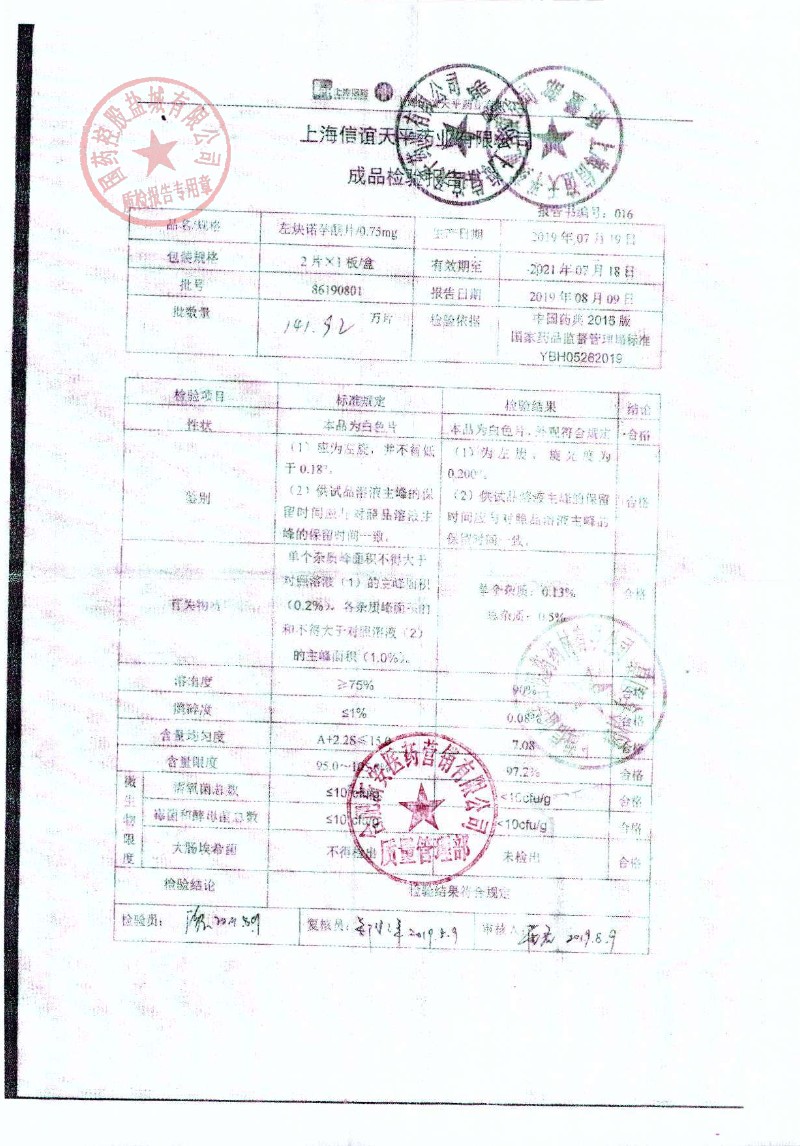 上海信谊
上海信谊天平药业有限公司
成品检验报告书
国药控股盐城有限公司
质检报告专用章
报告书编号：016
品名/规格 左炔诺孕酮片/0.75mg 生产日期 2019年07月19日
包装规格 2片×1板/盒 有效期至 2021年07月18日
批号 86190801 报告日期 2019年08月09日
批数量 141.92 万片 检验依据 中国药典2015版
国家药品监督管理局标准
YBH05262019
检验项目 标准规定 检验结果 结论
性状 本品为白色片 本品为白色片，外观符合规定 合格
鉴别 （1）应为左旋，并不得低 （1）为左旋，旋光度为 合格
于0.18°。 0.200°。
（2）供试品溶液主峰的保 （2）供试品溶液主峰的保留
留时间应与对照品溶液主 时间应与对照品溶液主峰的
峰的保留时间一致。 保留时间一致。
有关物质 单个杂质峰面积不得大于 单个杂质：0.13% 合格
对照溶液（1）的主峰面积 总杂质：0.5%
（0.2%），各杂质峰面积的
和不得大于对照溶液（2）
的主峰面积（1.0%）。
溶出度 ≥75% 90% 合格
脆碎度 ≤1% 0.08% 合格
含量均匀度 A+2.2S≤15.0 7.08 合格
含量限度 95.0～10 97.2% 合格
微生物限度 需氧菌总数 ≤10 cfu/g <10cfu/g 合格
霉菌和酵母菌总数 ≤10 cfu/g <10cfu/g 合格
大肠埃希菌 不得检出 未检出 合格
医药营销有限公司
质量管理部
检验结论 检验结果符合规定
检验员： 2019.8.9 复核员： 2019.8.9 审核人： 2019.8.9